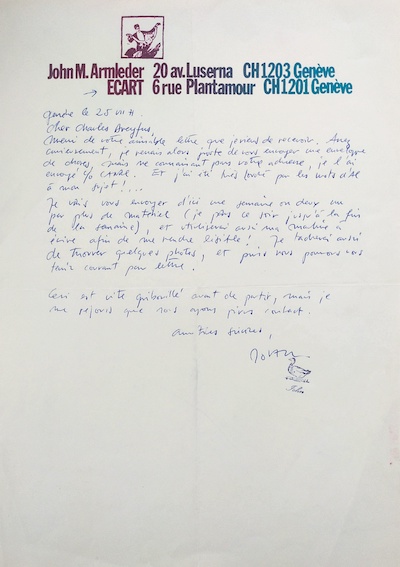 John M. Armleder 20 av. Luserna CH 1203 Genève
ECART 6 rue Plantamour CH 1201 Genève
Cher Charles Dreyfus,
Merci de votre aimable lettre que je viens de recevoir. Assez
curieusement, je venais alors juste de vous envoyer une enveloppe
de choses, mais ne connaissant pas votre adresse, je l'ai
envoyé c/o Et j'ai été très touché par les mots d'Al
à mon sujet!...
Je vais vous envoyer d'ici une semaine ou deux un
peu plus de matériel (je pars ce soir jusqu'à la fin
de la semaine), et utiliserai aussi ma machine à
écrire afin de me rendre lisible! Je tacherai aussi
de trouver quelques photos, et puis nous pouvons nous
tenir courant par lettre.
Ceci est vite gribouillé avant de partir, mais je
me réjouis que nous ayons pris contact.
amitiés sincères,
John